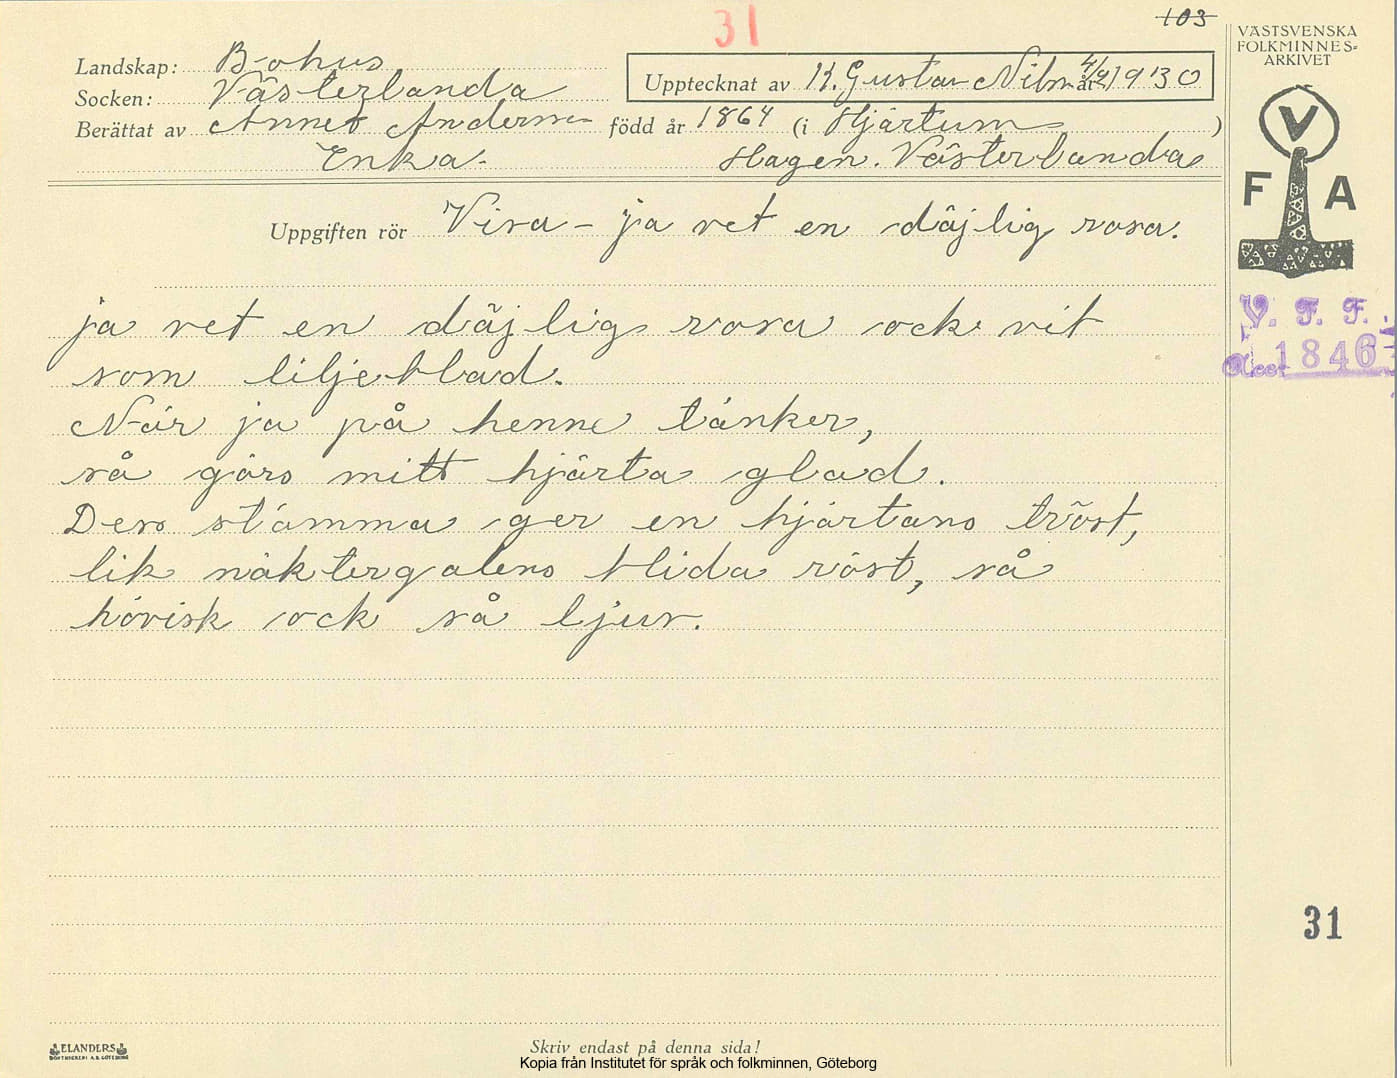 31
103
Landskap: Bohus
Socken: Västerlanda
Berättat av Annet Andersson född år 1864 (i Hjärtum)
Enka. Hagen. Västerlanda
Upptecknat av K. Gustav år 1930
Uppgiften rör Visa - ja vet en däjlig rosa.
ja vet en däjlig rosa ock vit
som liljeblad.
När ja på henne tänker,
så görs mitt hjärta glad.
Dess stämma ger en hjärtans tröst,
lik näktergalens blida röst, så
hövisk ock så ljuv.
VÄSTSVENSKA
FOLKMINNES-
ARKIVET
V
F A
V. F. F.
Acc. 1846
31
ELANDERS
BOKTRYCKERI A.B. GÖTEBORG
Skriv endast på denna sida!
Kopia från Institutet för språk och folkminnen, Göteborg